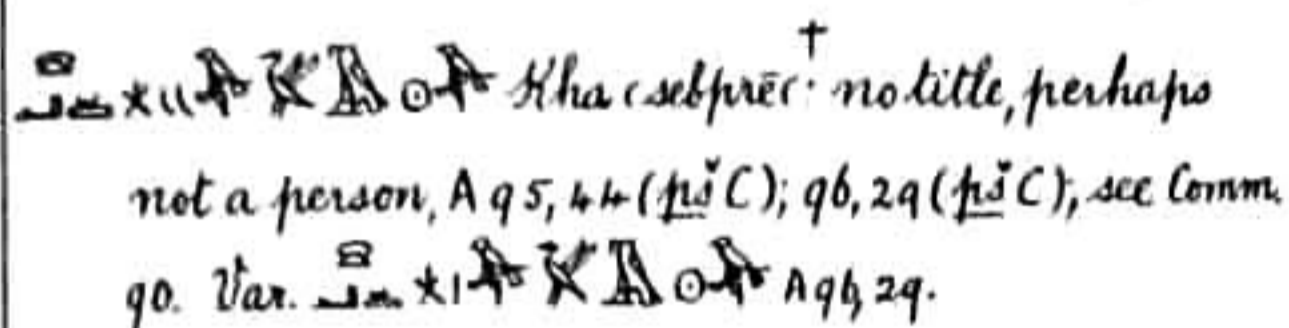 Khaꜥsebprēꜥ·† no title, perhaps
not a person, A 95, 44 (pš C); 96, 29 (pš C); see Comm.
90. Var. A 96, 29.